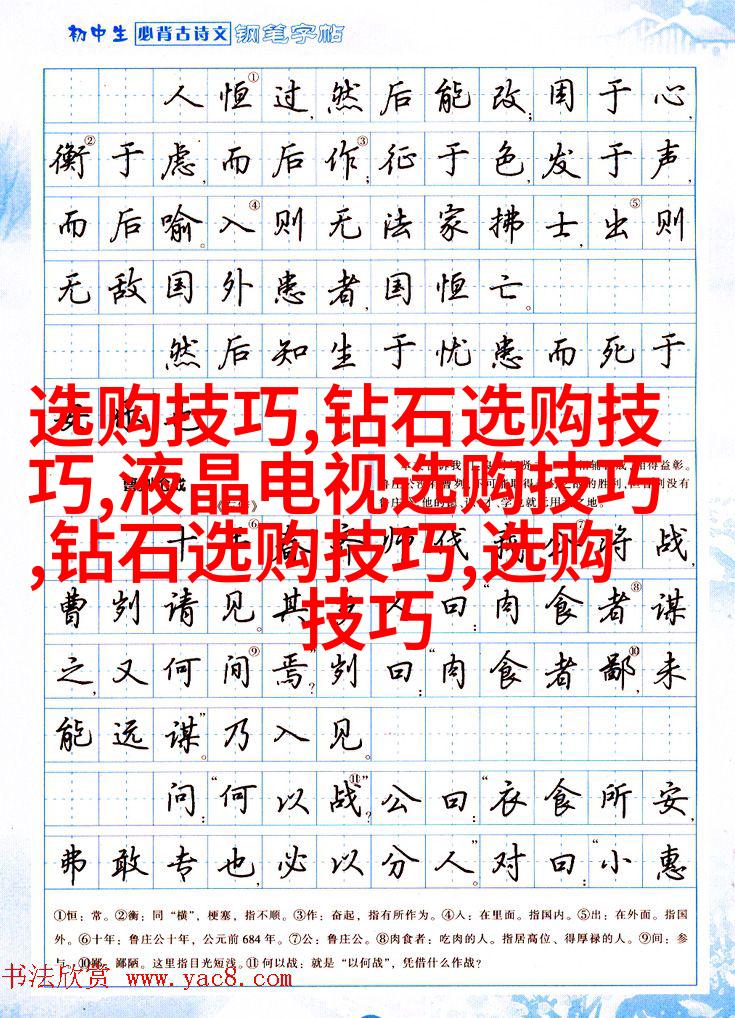 初中生 必背古诗文 钢笔字帖
人恒①过,然后能改;困于心,
衡②于虑,而后作③;征于色,发于声,
而后喻。入④则无法家拂士,出⑤则
无敌国外患者,国恒亡。
然后知生于忧患而死于
选购技巧,钻石选购技
巧,液晶电视选购技巧
,钻石选购技巧,选购
技巧
师伐我公⑦将战,
曹刿请见。其乡人曰:“肉食者⑧谋
之,又何间⑨焉?”刿曰:“肉食者鄙⑩,未
能远谋。”乃入见。
问:“何以战⑪?”公曰:“衣食所安,
弗敢专也,必以分人。”对曰:“小惠
①恒:常。②衡:同“横”,梗塞,指不顺。③作:奋起,指有所作为。④入:在里面。指国内。⑤出:在外面。指国
外。⑥十年:鲁庄公十年,公元前684年。⑦公:鲁庄公。⑧肉食者:吃肉的人。指居高位、得厚禄的人。⑨间:参
与。⑩鄙:鄙陋。这里指目光短浅。⑪何以战:就是“以何战”,凭借什么作战?
书法欣赏 www.yac8.com